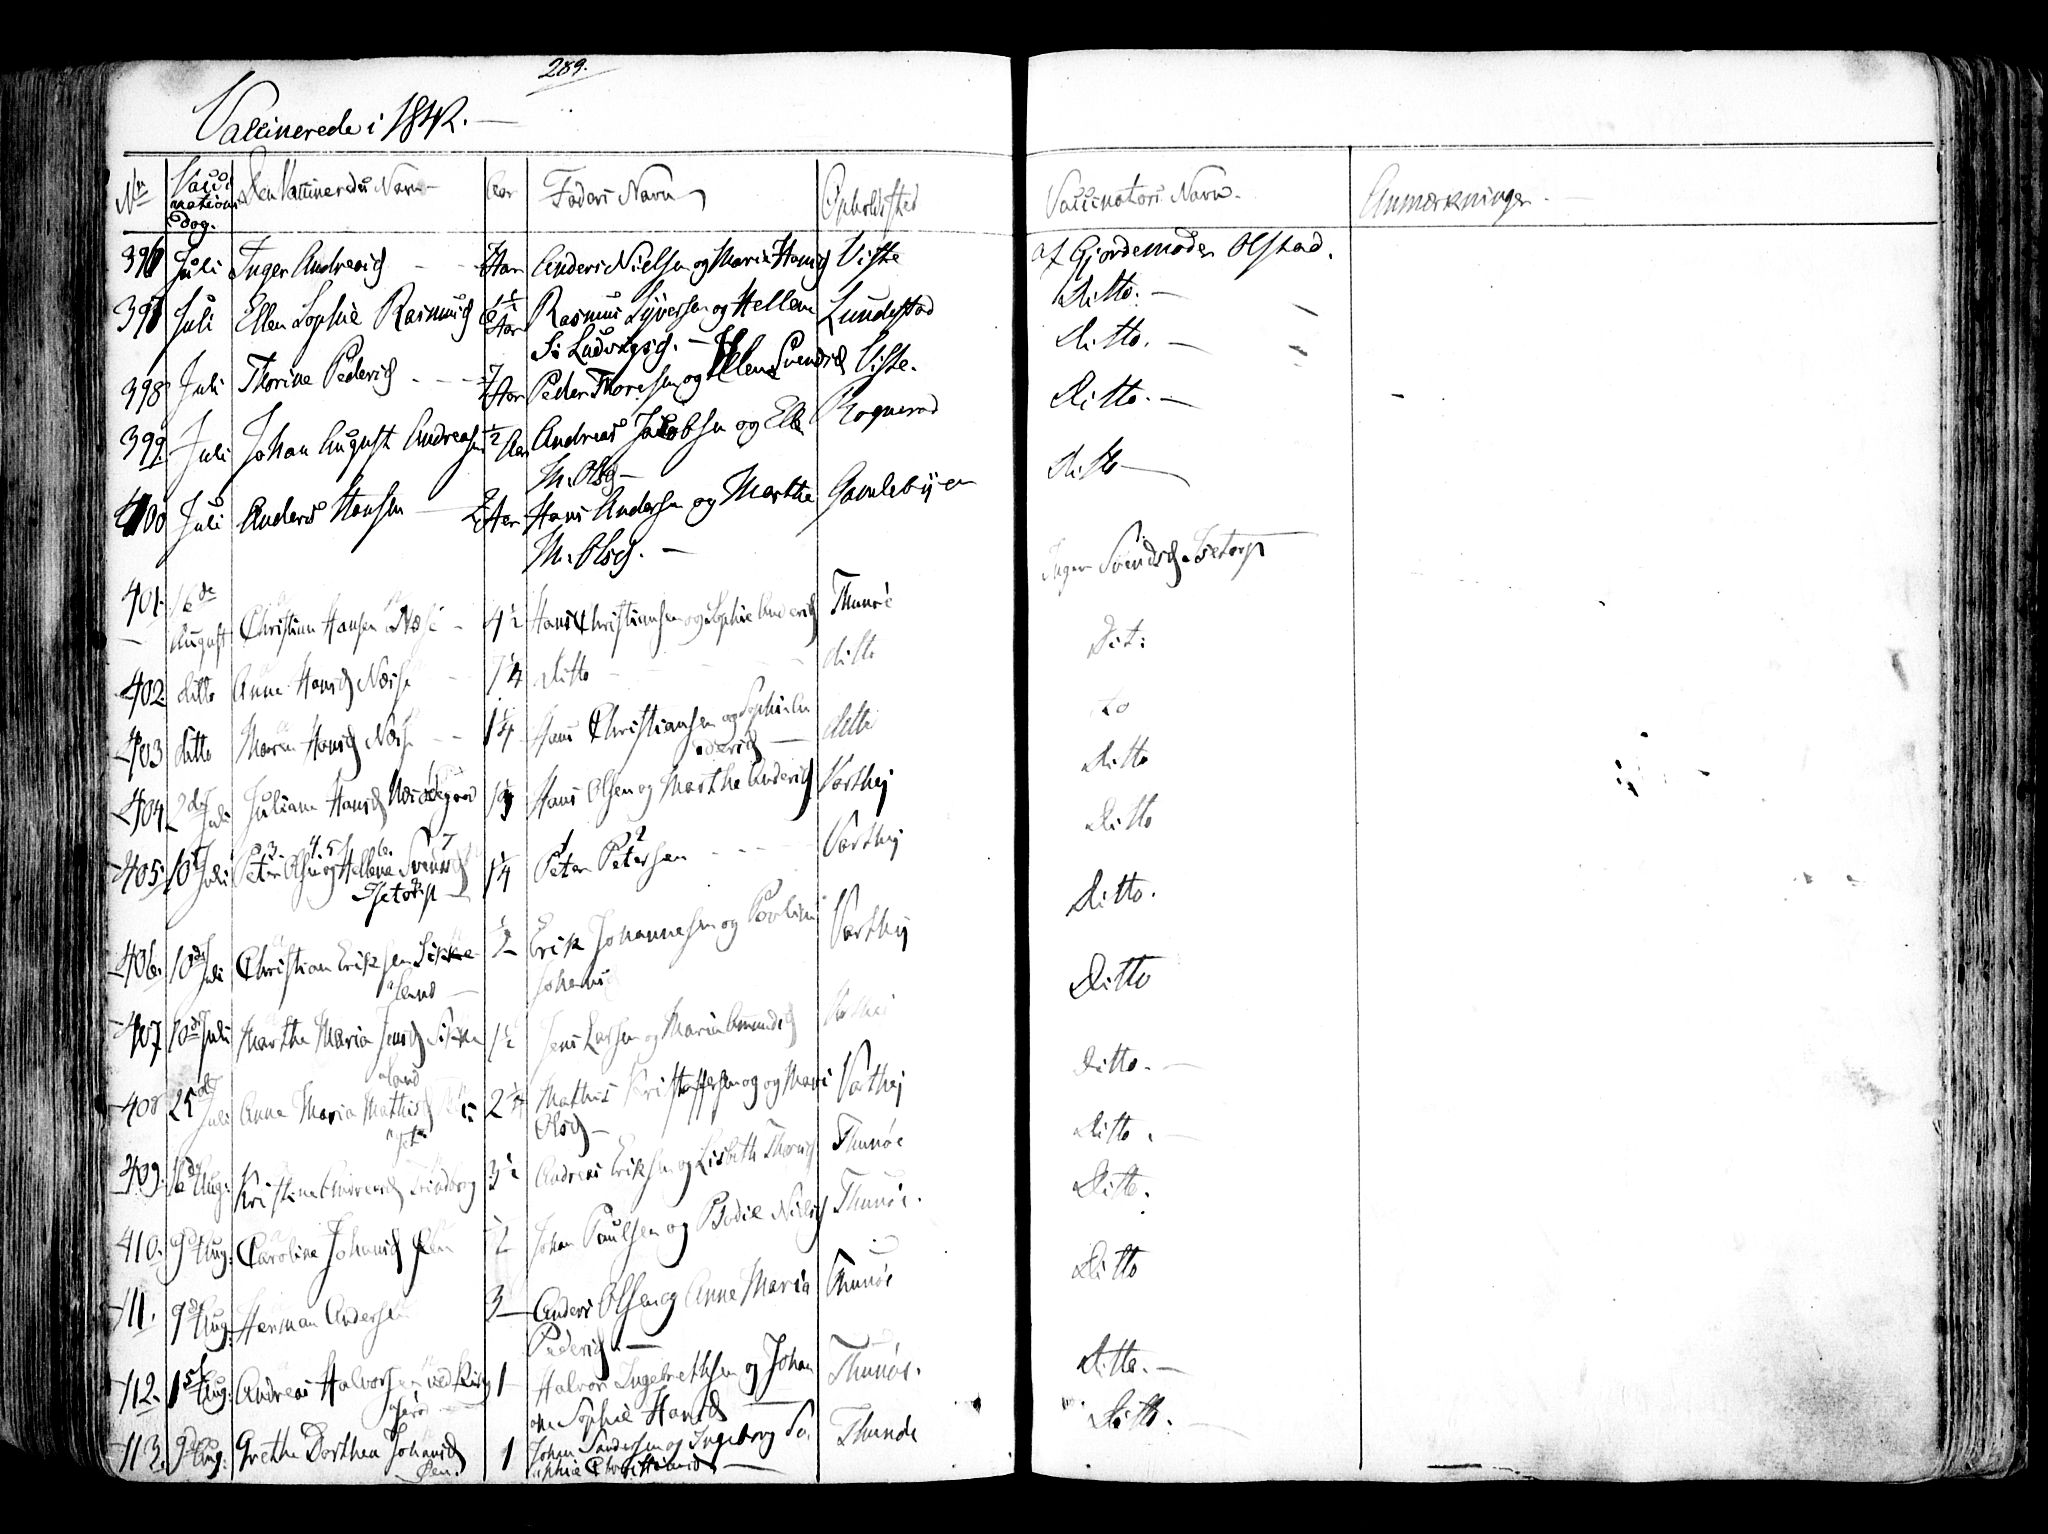 289.
Vaccinerede i 1842.
No Vaccinations dag. Den Vaccineredes Navn Aar Faders Navn Opholdsted Vaccinators Navn. Anmærkninger
396 Juli Inger Andersd Aar Anders Nielsen og Maria Hansd Viste af Gjordemoder Olstad.
397 Juli Ellen Sophie Rasmusd Aar Rasmus Syversen og Hellene Lundestad Ditto.
So Ludvigsd.
398 Juli Thorine Pedersd Aar Peder Thoresen og Helene Svendsd Viste. Ditto.
399. Juli Johan August Andreasen ½ Aar Andreas Jacobsen og Elle Rognerød Ditto.
M. Olsd
400 Juli Anders Hansen 2 Aar Hans Andersen og Marthe Gamlebyen Ditto
M. Olsd.
401. 16de August Christian Hansen Næse 4½ Hans Christiansen og Sophie Andersd Thunøe Inger Svendsd Isetorp
402. ditto Anne Hansd Næse 7¼ Ditto ditto Dit:
403 ditto Maren Hansd Næse 1¼ Hans Christiansen og Sophie An ditto do
dersd
404 2de Juli Juliane Hansd Næsødegaard Hans Olsen og Marthe Andersd Vorthej Ditto
405. 10de Juli Peter Olsen og Hellene Svendsd 1¼ Peter Petersen Vorthej Ditto
Isetorp
406. 10de Juli Christian Eriksen Sikke ½ Erik Johannesen og Povline Vorthej Ditto.
land Johansd
407 10de Juli Marthe Maria Jensd Sikke 1½ Jens Larsen og Maria Amundsd Ditto
land
408 25de Juli Anne Maria Mathisd 2¼ Mathis Kristoffersen og og Mari Vorthej Ditto.
Olsd
409. 16de Aug: Kristine Andreasd 3½ Andreas Eriksen og Lisbeth Thoresd Thunøe Ditto.
410. 9de Aug: Caroline Johansd Øen ½ Johan Paulsen og Bodil Nielsd Thunøe. Ditto.
411. 9de Aug: Herman Andersen 3 Anders Olsen og Anne Maria Thunøe Ditto
Pedersd.
412. 1ste Aug: Andreas Halvorsen 1 Halvor Ingebrethsen og Johan Thunøe. Ditto.
ne Sophie Hansd
413. 9de Aug: Grethe Dorthea Johansd 1 Johan Andersen og Ingeborg So Thunøe Ditto.
Øen. phie Christiansd